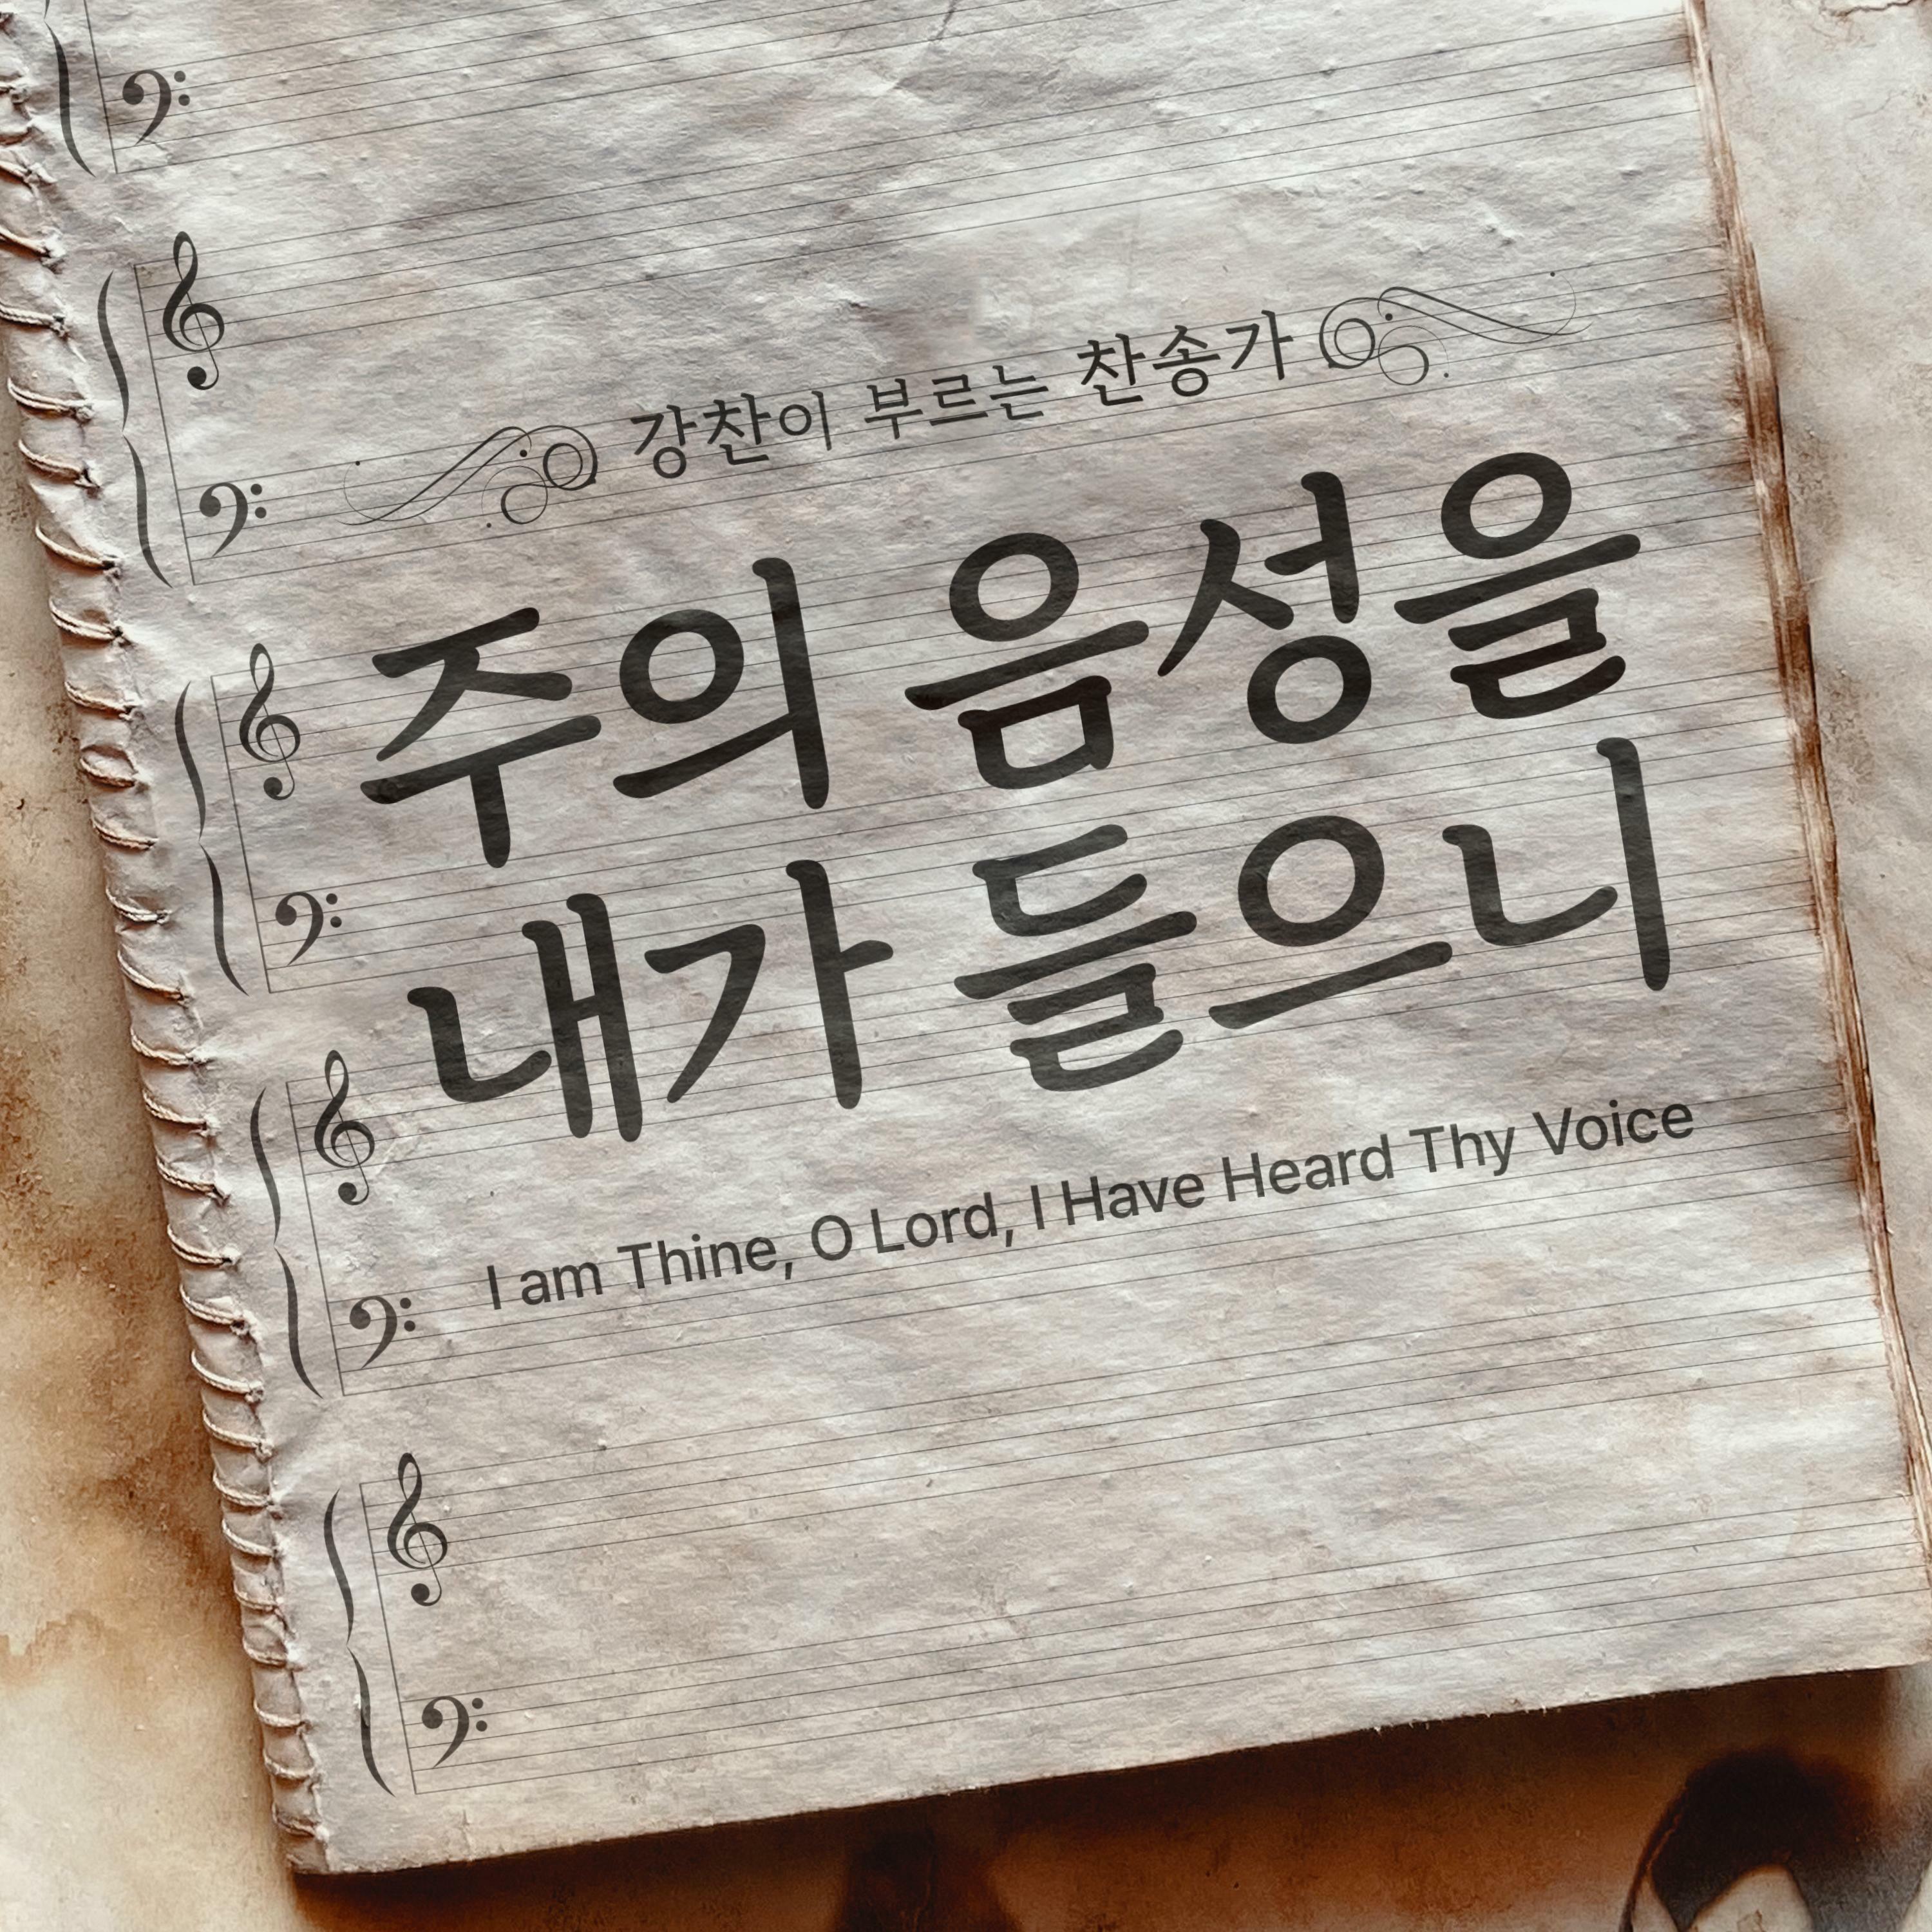 강찬이 부르는 찬송가
주의 음성을
내가 들으니
I am Thine, O Lord, I Have Heard Thy Voice